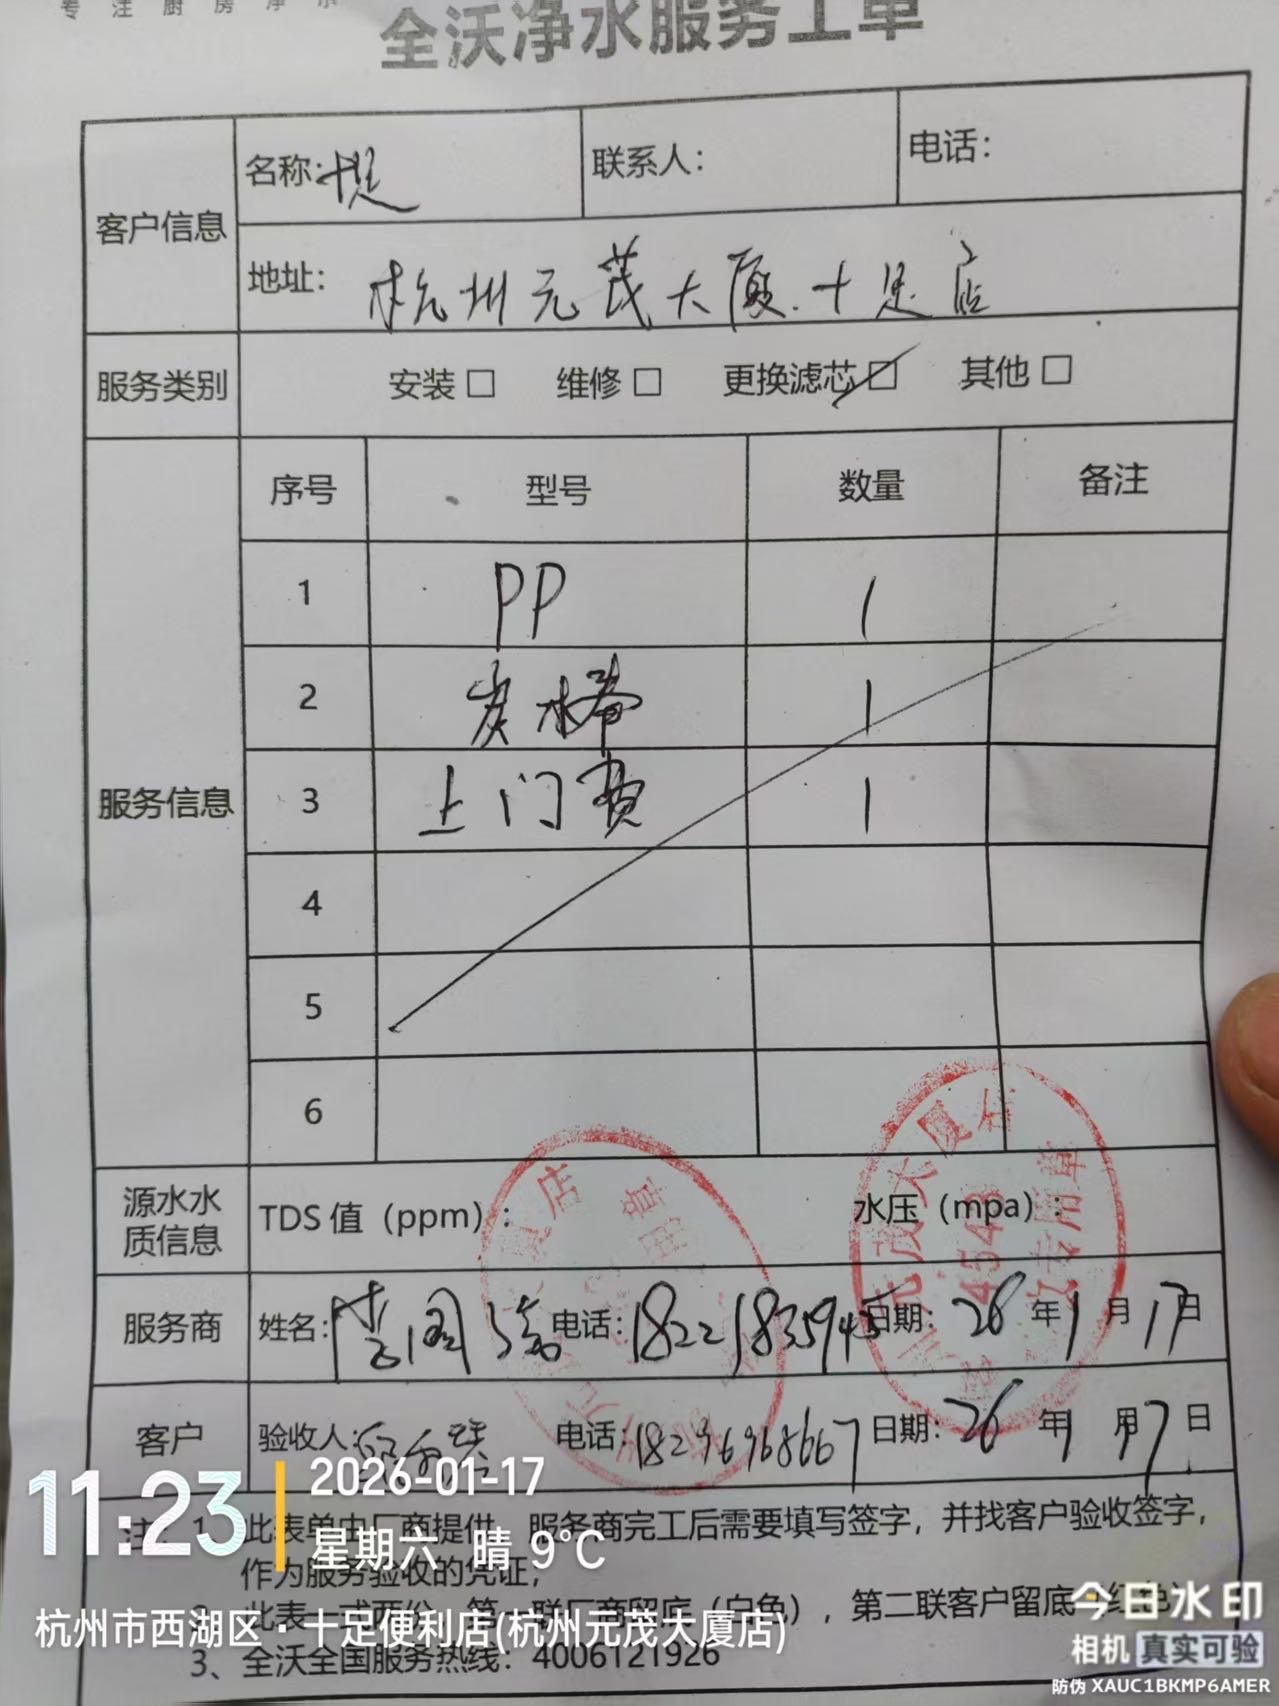 专注厨房净水
全沃净水服务工单
客户信息
名称:十足
联系人:
电话:
地址: 杭州元茂大厦.十足店
服务类别 安装□ 维修□ 更换滤芯□ 其他□
服务信息
序号 型号 数量 备注
1 PP 1
2 炭 1
3 上门费 1
4
5
6
源水水质信息
TDS值（ppm）: 水压（mpa）:
元茂大厦店
4543
专用章
服务商 姓名: 电话:18221835945 日期:26年1月17日
客户 验收人: 电话:18296968667 日期:26年1月17日
注 1、此表单由厂商提供，服务商完工后需要填写签字，并找客户验收签字，
作为服务验收的凭证；
2、此表一式两份，第一联厂商留底（白色），第二联客户留底（红色）
3、全沃全国服务热线：4006121926
11:23
2026-01-17
星期六 晴 9°C
杭州市西湖区·十足便利店(杭州元茂大厦店)
今日水印
相机 真实可验
防伪 XAUC1BKMP6AMER